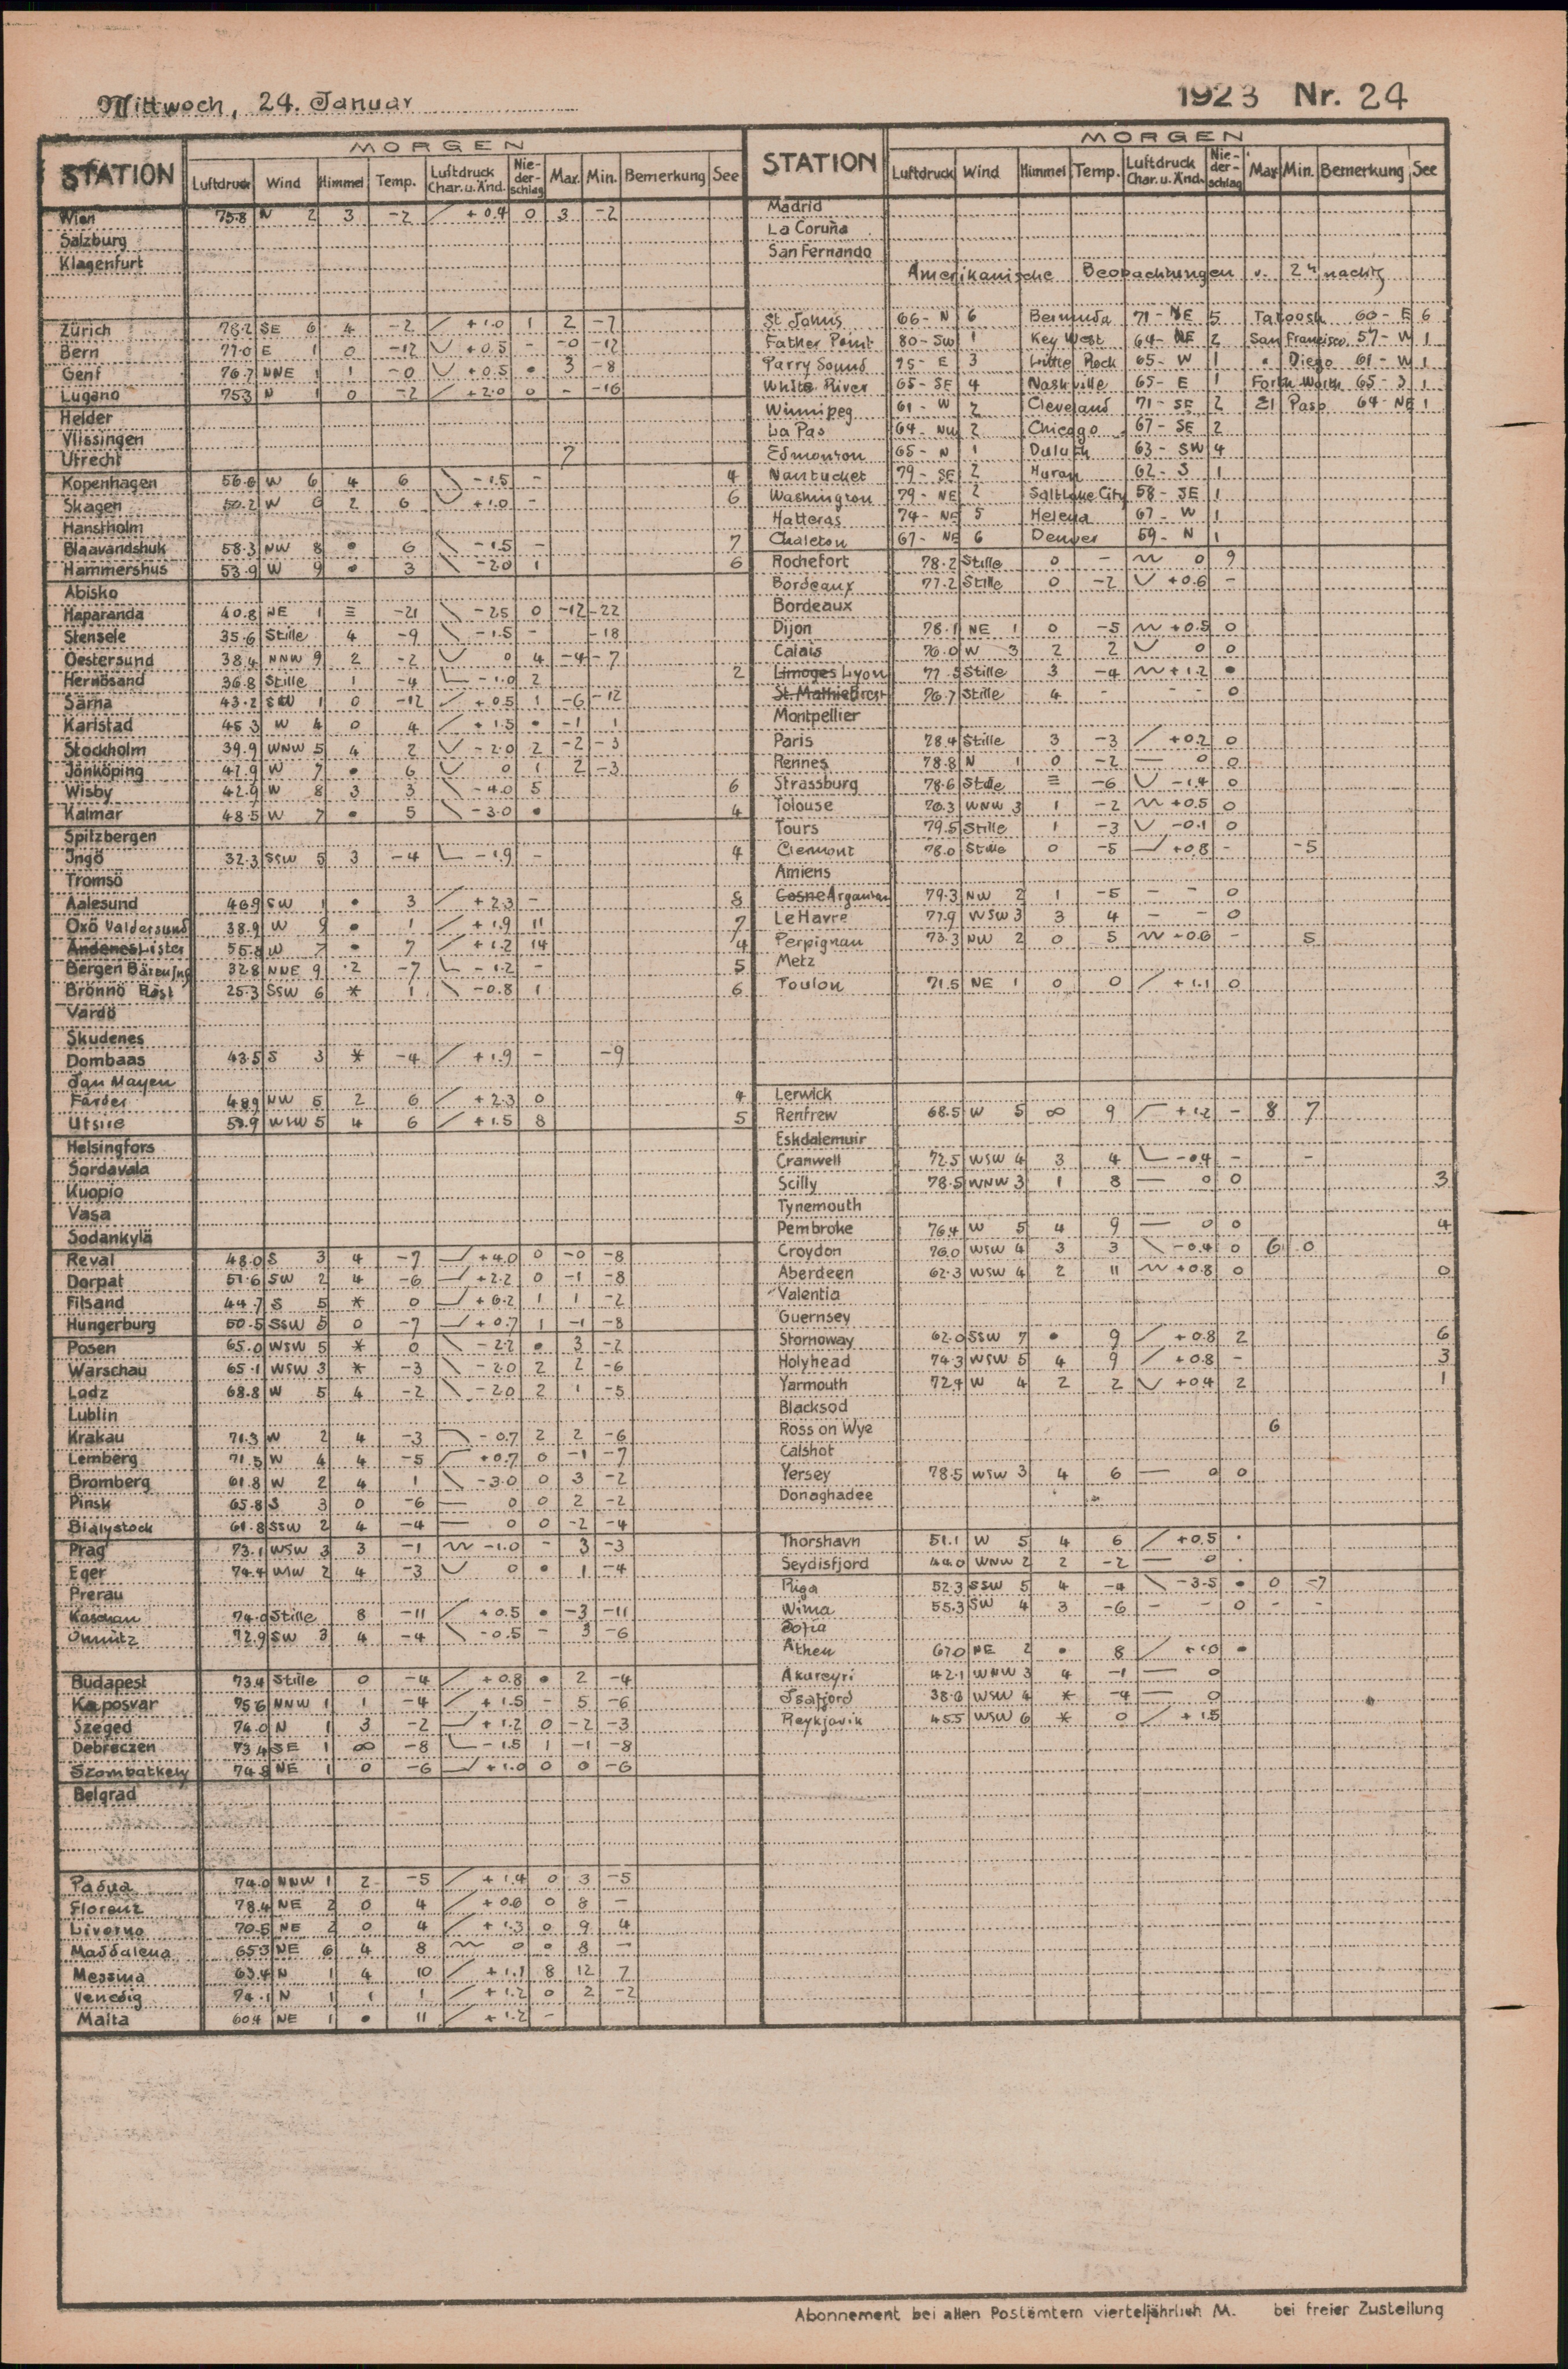 Mittwoch, 24. Januar
1923 Nr. 24
MORGEN
STATION Luftdruck Wind Himmel Temp. Luftdruck Char. u. Änd. Nie-der-schlag Max. Min. Bemerkung See
Wien 75.8 N 2 3 -2 +0.4 0 3 -2
Salzburg
Klagenfurt
Zürich 78.2 SE 6 4 -2 +1.0 1 2 -7
Bern 77.0 E 1 0 -12 +0.5 - -0 -12
Genf 76.7 NNE 1 1 -0 +0.5 • 3 -8
Lugano 75.3 N 1 0 -2 +2.0 0 - -16
Helder
Vlissingen
Utrecht 7
Kopenhagen 56.6 W 6 4 6 -1.5 - 4
Skagen 50.2 W 6 2 6 +1.0 - 6
Hanstholm
Blaavandshuk 58.3 NW 8 • 6 -1.5 - 7
Hammershus 53.9 W 9 • 3 -2.0 1 6
Abisko
Haparanda 40.8 NE 1 ≡ -21 -2.5 0 -12 -22
Stensele 35.6 Stille 4 -9 -1.5 - -18
Oestersund 38.4 NNW 9 2 -2 0 4 -4 -7
Hernösand 36.8 Stille 1 -4 -1.0 2 2
Särna 43.2 SW 1 0 -12 +0.5 1 -6 -12
Karlstad 45.3 W 4 0 4 +1.5 • -1 1
Stockholm 39.9 WNW 5 4 2 -2.0 2 -2 -3
Jönköping 47.9 W 7 • 6 0 1 2 -3
Wisby 42.9 W 8 3 3 -4.0 5 6
Kalmar 48.5 W 7 • 5 -3.0 • 4
Spitzbergen
Ingö 32.3 SSW 5 3 -4 -1.9 - 4
Tromsö
Aalesund 46.9 SW 1 • 3 +2.3 - 8
Oxö Valdersund 38.9 W 9 • 1 +1.9 11 7
Andenes Lister 55.8 W 7 • 7 +1.2 14 4
Bergen Bäreninsl 32.8 NNE 9 2 -7 -1.2 - 5
Brönnö Röst 25.3 SSW 6 * 1 -0.8 1 6
Vardö
Skudenes
Dombaas 43.5 S 3 * -4 +1.9 - -9
Jan Mayen
Färder 48.9 NW 5 2 6 +2.3 0 4
Utsire 53.9 WSW 5 4 6 +1.5 8 5
Helsingfors
Sordavala
Kuopio
Vasa
Sodankylä
Reval 48.0 S 3 4 -7 +4.0 0 -0 -8
Dorpat 51.6 SW 2 4 -6 +2.2 0 -1 -8
Filsand 44.7 S 5 * 0 +6.2 1 1 -2
Hungerburg 50.5 SSW 5 0 -7 +0.7 1 -1 -8
Posen 65.0 WSW 5 * 0 -2.2 • 3 -2
Warschau 65.1 WSW 3 * -3 -2.0 2 2 -6
Lodz 68.8 W 5 4 -2 -2.0 2 1 -5
Lublin
Krakau 71.3 W 2 4 -3 -0.7 2 2 -6
Lemberg 71.5 W 4 4 -5 +0.7 0 -1 -7
Bromberg 61.8 W 2 4 1 -3.0 0 3 -2
Pinsk 65.8 S 3 0 -6 0 0 2 -2
Bialystock 61.8 SSW 2 4 -4 0 0 -2 -4
Prag 73.1 WSW 3 3 -1 -1.0 - 3 -3
Eger 74.4 WSW 2 4 -3 0 • 1 -4
Prerau
Kaschau 74.0 Stille 8 -11 +0.5 • -3 -11
Olmütz 72.9 SW 3 4 -4 -0.5 - 3 -6
Budapest 73.4 Stille 0 -4 +0.8 • 2 -4
Kaposvar 75.6 NNW 1 1 -4 +1.5 - 5 -6
Szeged 74.0 N 1 3 -2 +1.2 0 -2 -3
Debreczen 73.4 SE 1 ∞ -8 -1.5 1 -1 -8
Szombatkely 74.8 NE 1 0 -6 +1.0 0 0 -6
Belgrad
Padua 74.0 NNW 1 2 -5 +1.4 0 3 -5
Florenz 78.4 NE 2 0 4 +0.6 0 8 -
Livorno 70.5 NE 2 0 4 +1.3 0 9 4
Maddalena 65.3 NE 6 4 8 0 • 8 -
Messina 63.4 N 1 4 10 +1.1 8 12 7
Venedig 74.1 N 1 1 1 +1.2 0 2 -2
Malta 60.4 NE 1 • 11 +1.2 -
MORGEN
STATION Luftdruck Wind Himmel Temp. Luftdruck Char. u. Änd. Nie-der-schlag Max. Min. Bemerkung See
Madrid
La Coruña
San Fernando
Amerikanische Beobachtungen v. 2 h nachts
St Johns 66 - N 6 Bermuda 71 - NE 5 Tatoosh 60 - E 6
Father Point 80 - SW 1 Key West 64 - NE 2 San Francisco 57 - W 1
Parry Sound 75 - E 3 Little Rock 65 - W 1 " Diego 61 - W 1
White River 65 - SE 4 Nashville 65 - E 1 Forth Worth 65 - S 1
Winnipeg 61 - W 2 Cleveland 71 - SE 2 El Paso 64 - NE 1
La Pas 64 - NW 2 Chicago 67 - SE 2
Edmonton 65 - N 1 Duluth 63 - SW 4
Nantucket 79 - SE 2 Huron 62 - S 1
Washington 79 - NE 2 Saltlake City 58 - SE 1
Hatteras 74 - NE 5 Helena 67 - W 1
Chaleton 67 - NE 6 Denver 59 - N 1
Rochefort 78.2 Stille 0 - 0 9
Bordeaux 77.2 Stille 0 -2 +0.6 -
Bordeaux
Dijon 78.1 NE 1 0 -5 +0.5 0
Calais 76.0 W 3 2 2 0 0
Limoges Lyon 77.5 Stille 3 -4 +1.2 •
St. Mathieu Brest 76.7 Stille 4 - - - 0
Montpellier
Paris 78.4 Stille 3 -3 +0.2 0
Rennes 78.8 N 1 0 -2 0 0
Strassburg 78.6 Stille ≡ -6 -1.4 0
Tolouse 76.3 WNW 3 1 -2 +0.5 0
Tours 79.5 Stille 1 -3 -0.1 0
Clermont 78.0 Stille 0 -5 +0.8 - -5
Amiens
Cosne Argentan 79.3 NW 2 1 -5 - - 0
Le Havre 77.9 WSW 3 3 4 - - 0
Perpignan 73.3 NW 2 0 5 +0.6 - 5
Metz
Toulon 71.5 NE 1 0 0 +1.1 0
Lerwick
Renfrew 68.5 W 5 ∞ 9 +1.2 - 8 7
Eskdalemuir
Cranwell 72.5 WSW 4 3 4 -0.4 - -
Scilly 78.5 WNW 3 1 8 0 0 3
Tynemouth
Pembroke 76.4 W 5 4 9 0 0 4
Croydon 76.0 WSW 4 3 3 -0.4 0 6 0
Aberdeen 62.3 WSW 4 2 11 +0.8 0 0
Valentia
Guernsey
Stornoway 62.0 SSW 7 • 9 +0.8 2 6
Holyhead 74.3 WSW 5 4 9 +0.8 - 3
Yarmouth 72.4 W 4 2 2 +0.4 2 1
Blacksod
Ross on Wye 6
Calshot
Yersey 78.5 WSW 3 4 6 0 0
Donaghadee
Thorshavn 51.1 W 5 4 6 +0.5 ·
Seydisfjord 44.0 WNW 2 2 -2 0 ·
Riga 52.3 SSW 5 4 -4 -3.5 • 0 -7
Wilna 55.3 SW 4 3 -6 - - 0 - -
Sofia
Athen 67.0 NE 2 • 8 +1.0 •
Akureyri 42.1 WNW 3 4 -1 0
Isafjord 38.6 WSW 4 * -4 0
Reykjavik 45.5 WSW 6 * 0 +1.5
Abonnement bei allen Postämtern vierteljährlich M. bei freier Zustellung